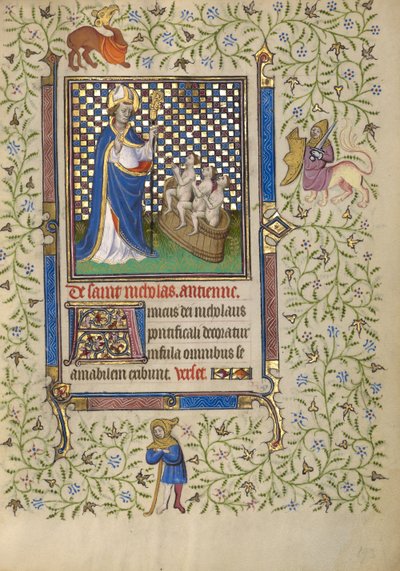 De saint nicholas. antienne.
Amicus dei nicholaus
pontificali decoratus
infula omnibus se
amabilem exibuit. Verset.